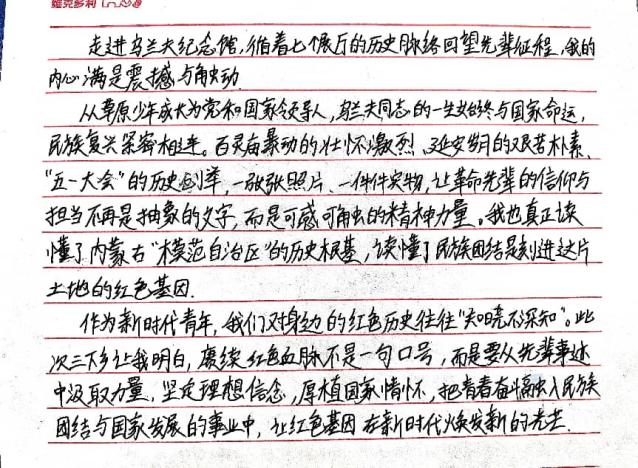 维克多利
走进乌兰夫纪念馆,循着七个展厅的历史脉络回望先辈征程,我的
内心满是震撼与触动.
从草原少年成长为党和国家领导人,乌兰夫同志的一生始终与国家命运,
民族复兴紧密相连。百灵庙暴动的壮怀激烈、延安岁月的艰苦朴素、
“五一大会”的历史创举,一张张照片、一件件实物,让革命先辈的信仰与
担当不再是抽象的文字,而是可感可触的精神力量。我也真正读
懂了内蒙古“模范自治区”的历史根基,读懂了民族团结是刻进这片
土地的红色基因.
作为新时代青年,我们对身边的红色历史往往“知晓不深知”。此
次三下乡让我明白,赓续红色血脉不是一句口号,而是要从先辈事迹
中汲取力量,坚定理想信念,厚植国家情怀,把青春奋斗融入民族
团结与国家发展的事业中,让红色基因在新时代焕发新的光芒.